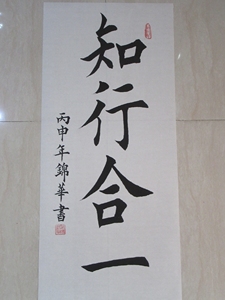 知行合一
丙申年錦華書